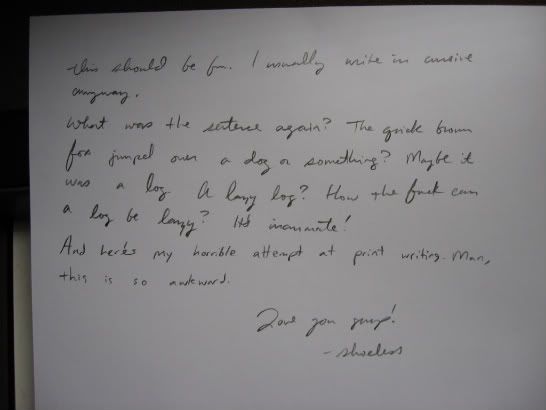 this should be fun. I usually write in cursive
anyway.
What was the sentence again? The quick brown
fox jumped over a dog or something? Maybe it
was a log. A lazy log? How the fuck can
a log be lazy? It's inanimate!
And here's my horrible attempt at print writing. Man,
this is so awkward.
Love you guys!
- shoeless